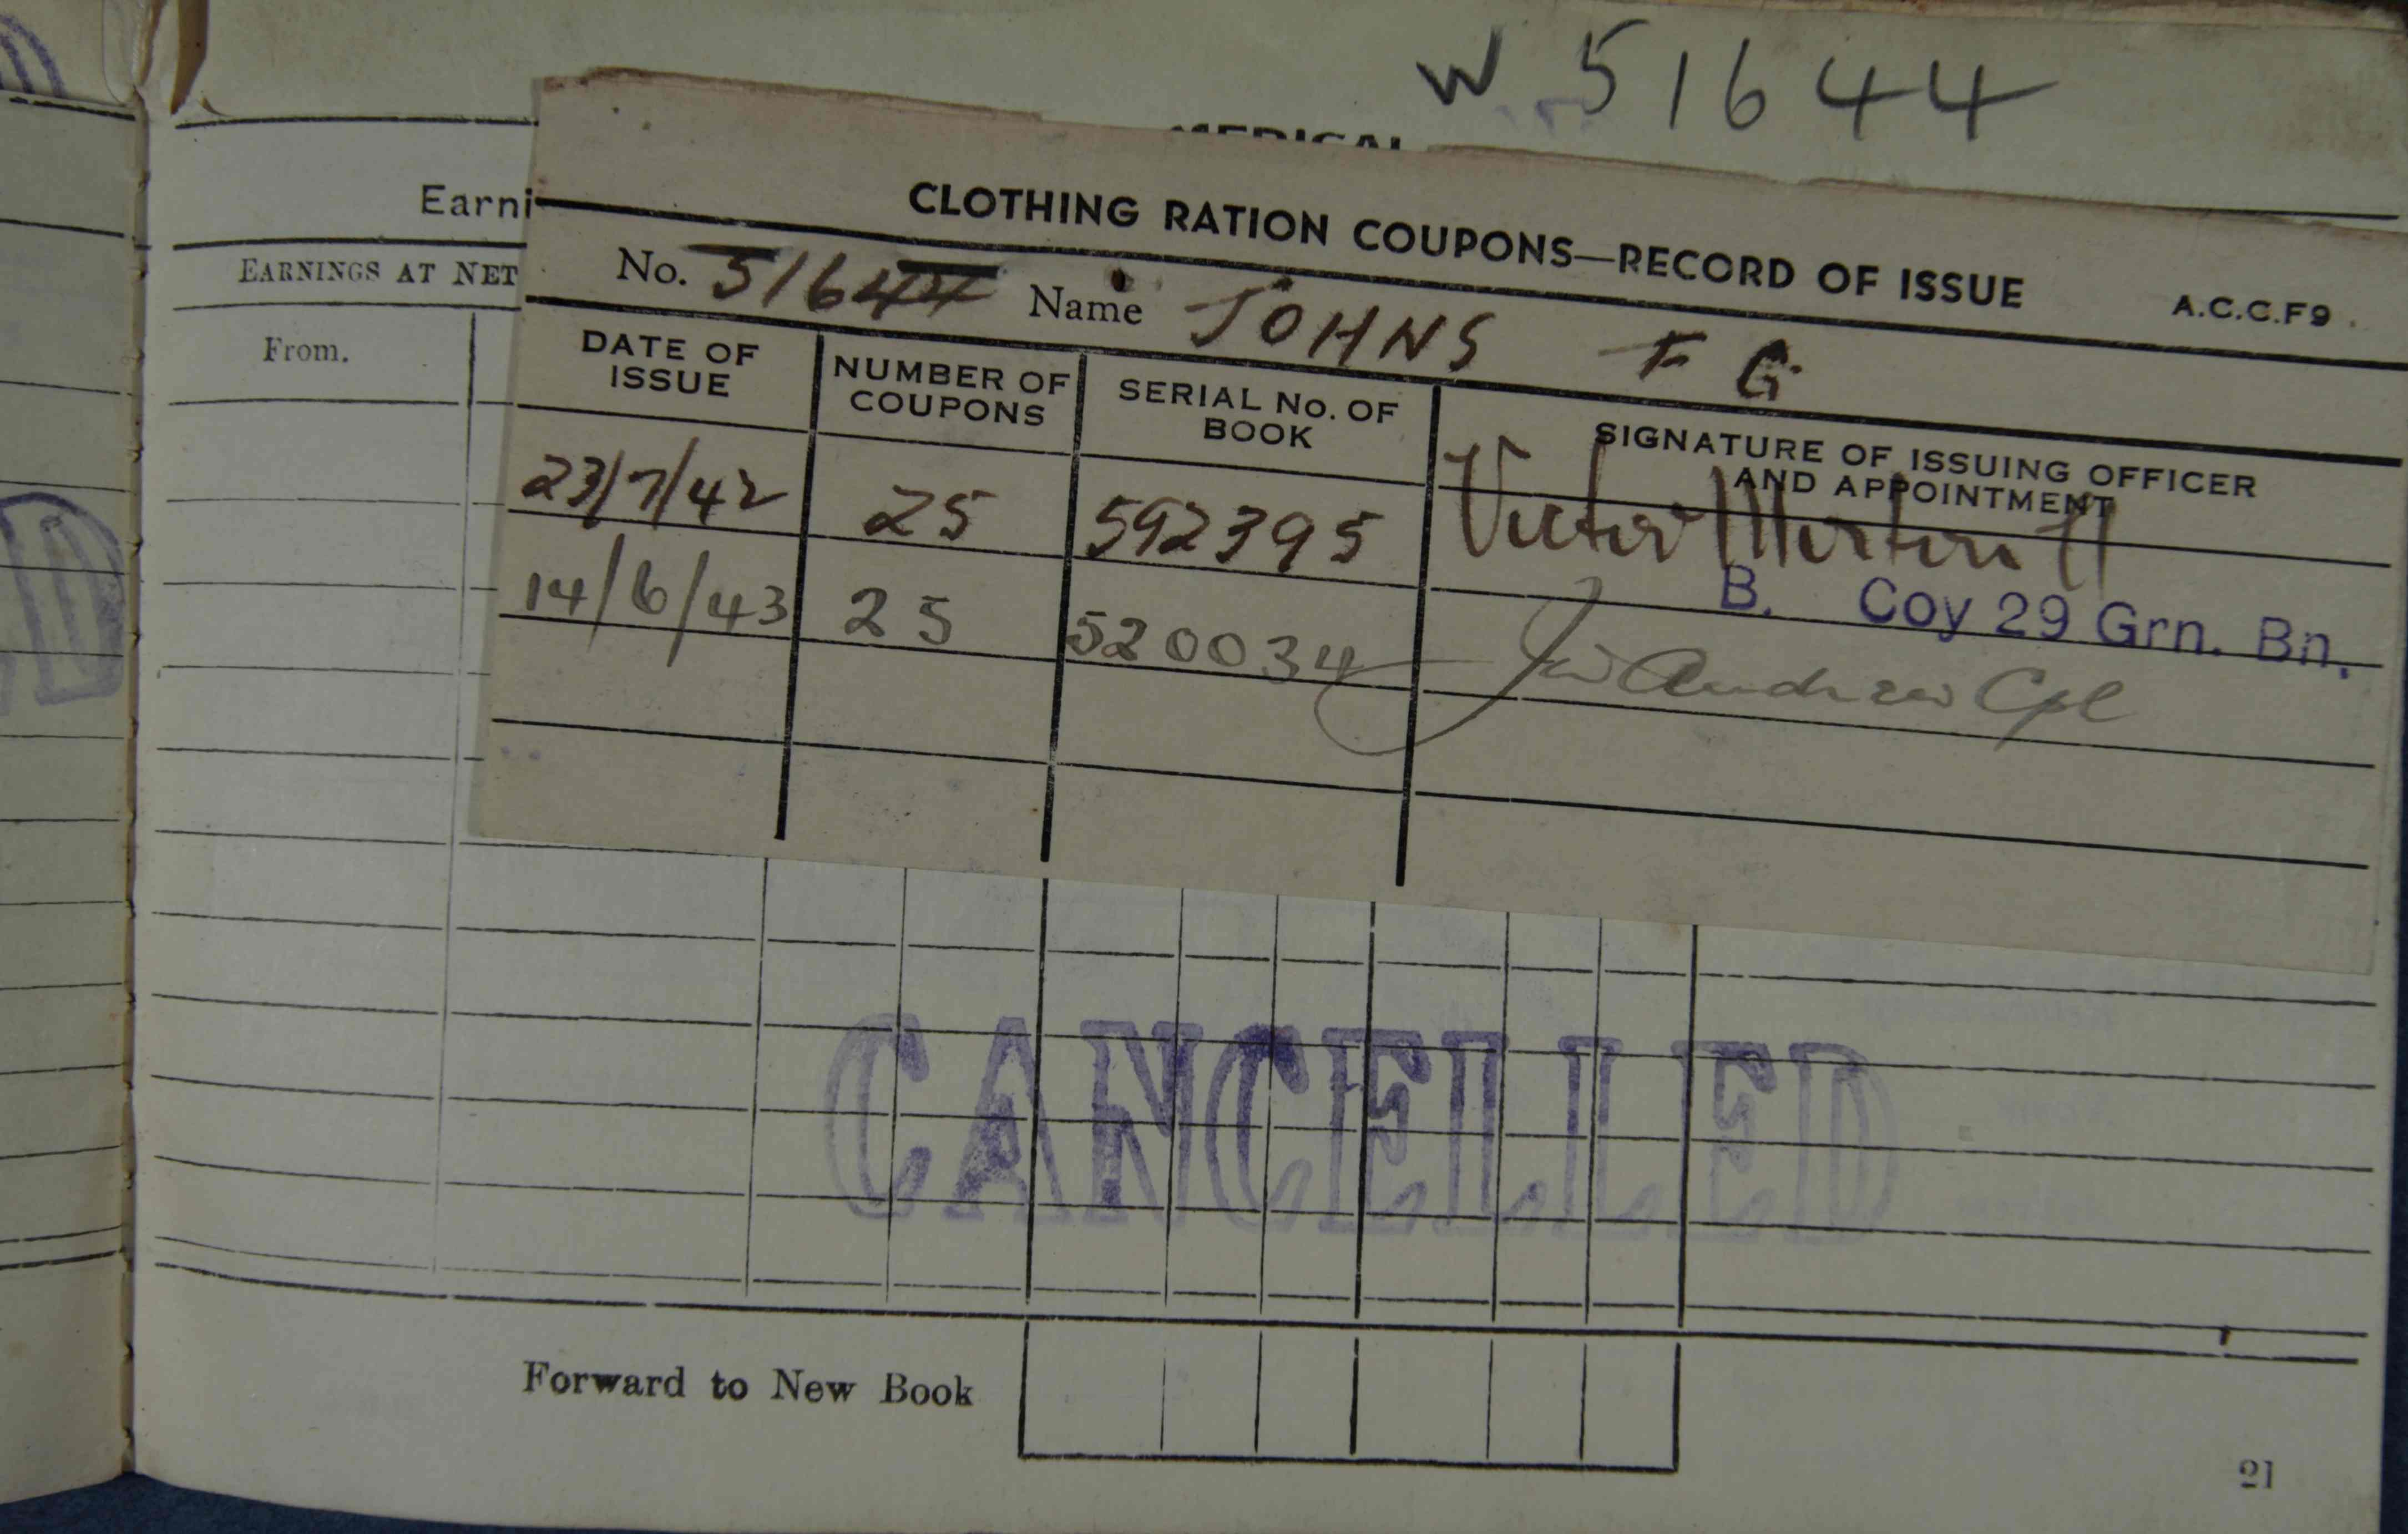 W 51644
MEDICAL
Earni
EARNINGS AT NET
From.
CLOTHING RATION COUPONS—RECORD OF ISSUE
A.C.C.F9.
No. 51644 Name JOHNS F G
DATE OF ISSUE
NUMBER OF COUPONS
SERIAL No. OF BOOK
SIGNATURE OF ISSUING OFFICER
AND APPOINTMENT
23/7/42 25 592395 Victor
B. Coy 29 Grn. Bn.
14/6/43 25 520034 Andrew Cpl
CANCELLED
Forward to New Book
21